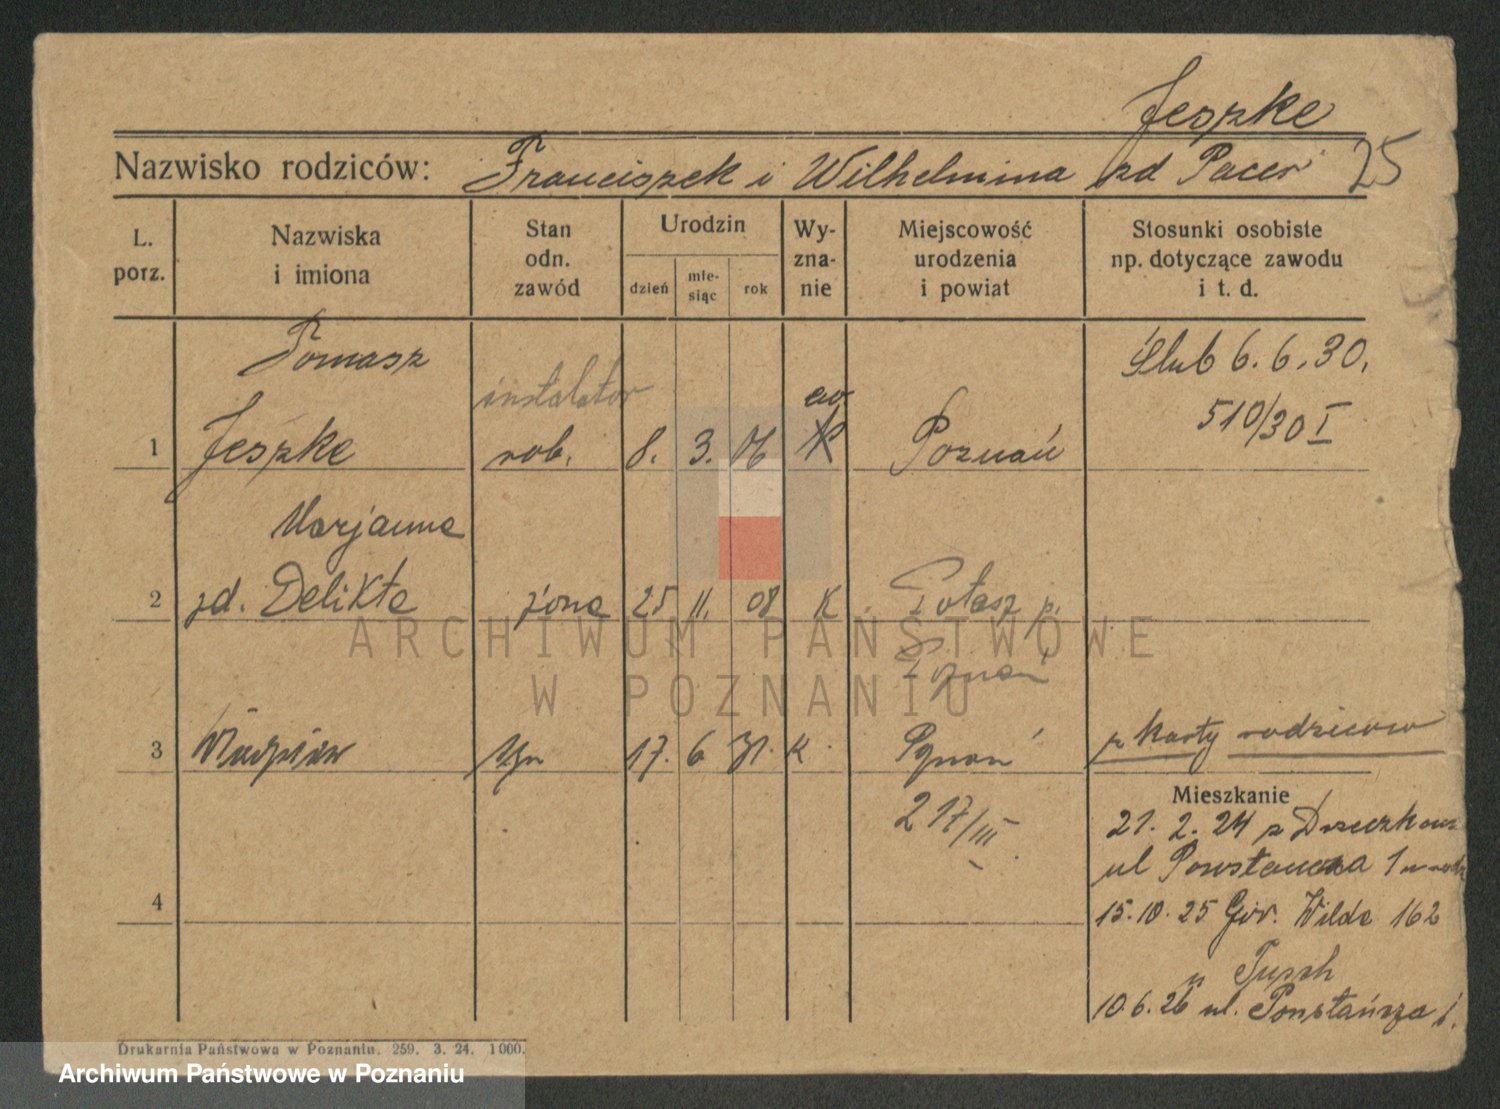 Jeszke
Nazwisko rodziców: Franciszek i Wilhelmina zd Pacer 25
L. porz.
Nazwiska i imiona
Stan odn. zawód
Urodzin
dzień
mie-siąc
rok
Wy-zna-nie
Miejscowość urodzenia i powiat
Stosunki osobiste np. dotyczące zawodu i t. d.
Tomasz instalator ew. Ślub 6.6.30.
1 Jeszke rob. 8. 3. 06 K Poznań 510/30 I
Marjanna
2 zd. Delikta żona 25 11. 08 K
Poznań
3 syn 17. 6 31. K. Poznań z karty rodziców
217/III
Mieszkanie
21. 2. 24 z
ul Powstańcza 1
4 15.10.25 Gór. Wilda 162
u
10.6.26 ul. Powstańcza 1.
Drukarnia Państwowa w Poznaniu. 259. 3. 24. 1000.
ARCHIWUM PAŃSTWOWE
W POZNANIU
Archiwum Państwowe w Poznaniu